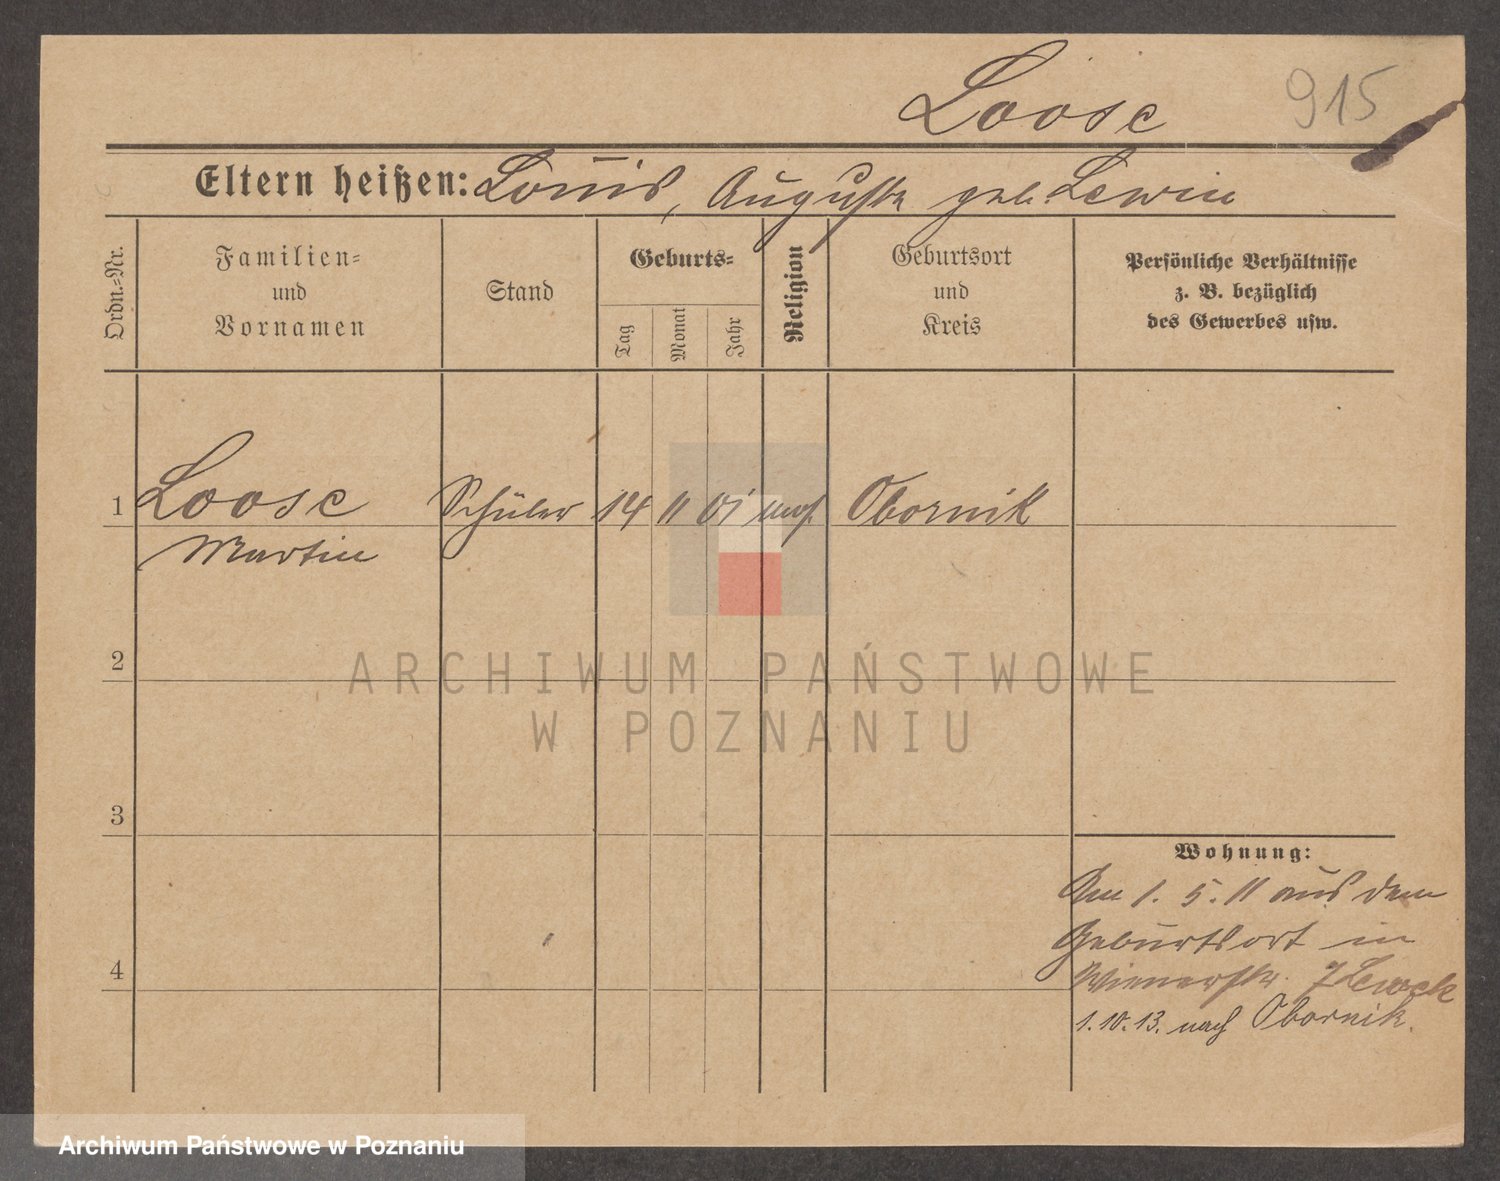 Loose
915
Eltern heißen: Louis, Auguste geb. Lewin
Ordn.-Nr.
Familien-
und
Vornamen
Stand
Geburts-
Tag
Monat
Jahr
Religion
Geburtsort
und
Kreis
Persönliche Verhältnisse
z. B. bezüglich
des Gewerbes usw.
1 Loose Schüler 14 11 01 mos. Obornik
Martin
2
3
4
Wohnung:
Am 1. 5. 11 aus dem
Geburtsort in
Wienerstr. 7
1. 10. 13. nach Obornik.
ARCHIWUM PAŃSTWOWE
W POZNANIU
Archiwum Państwowe w Poznaniu